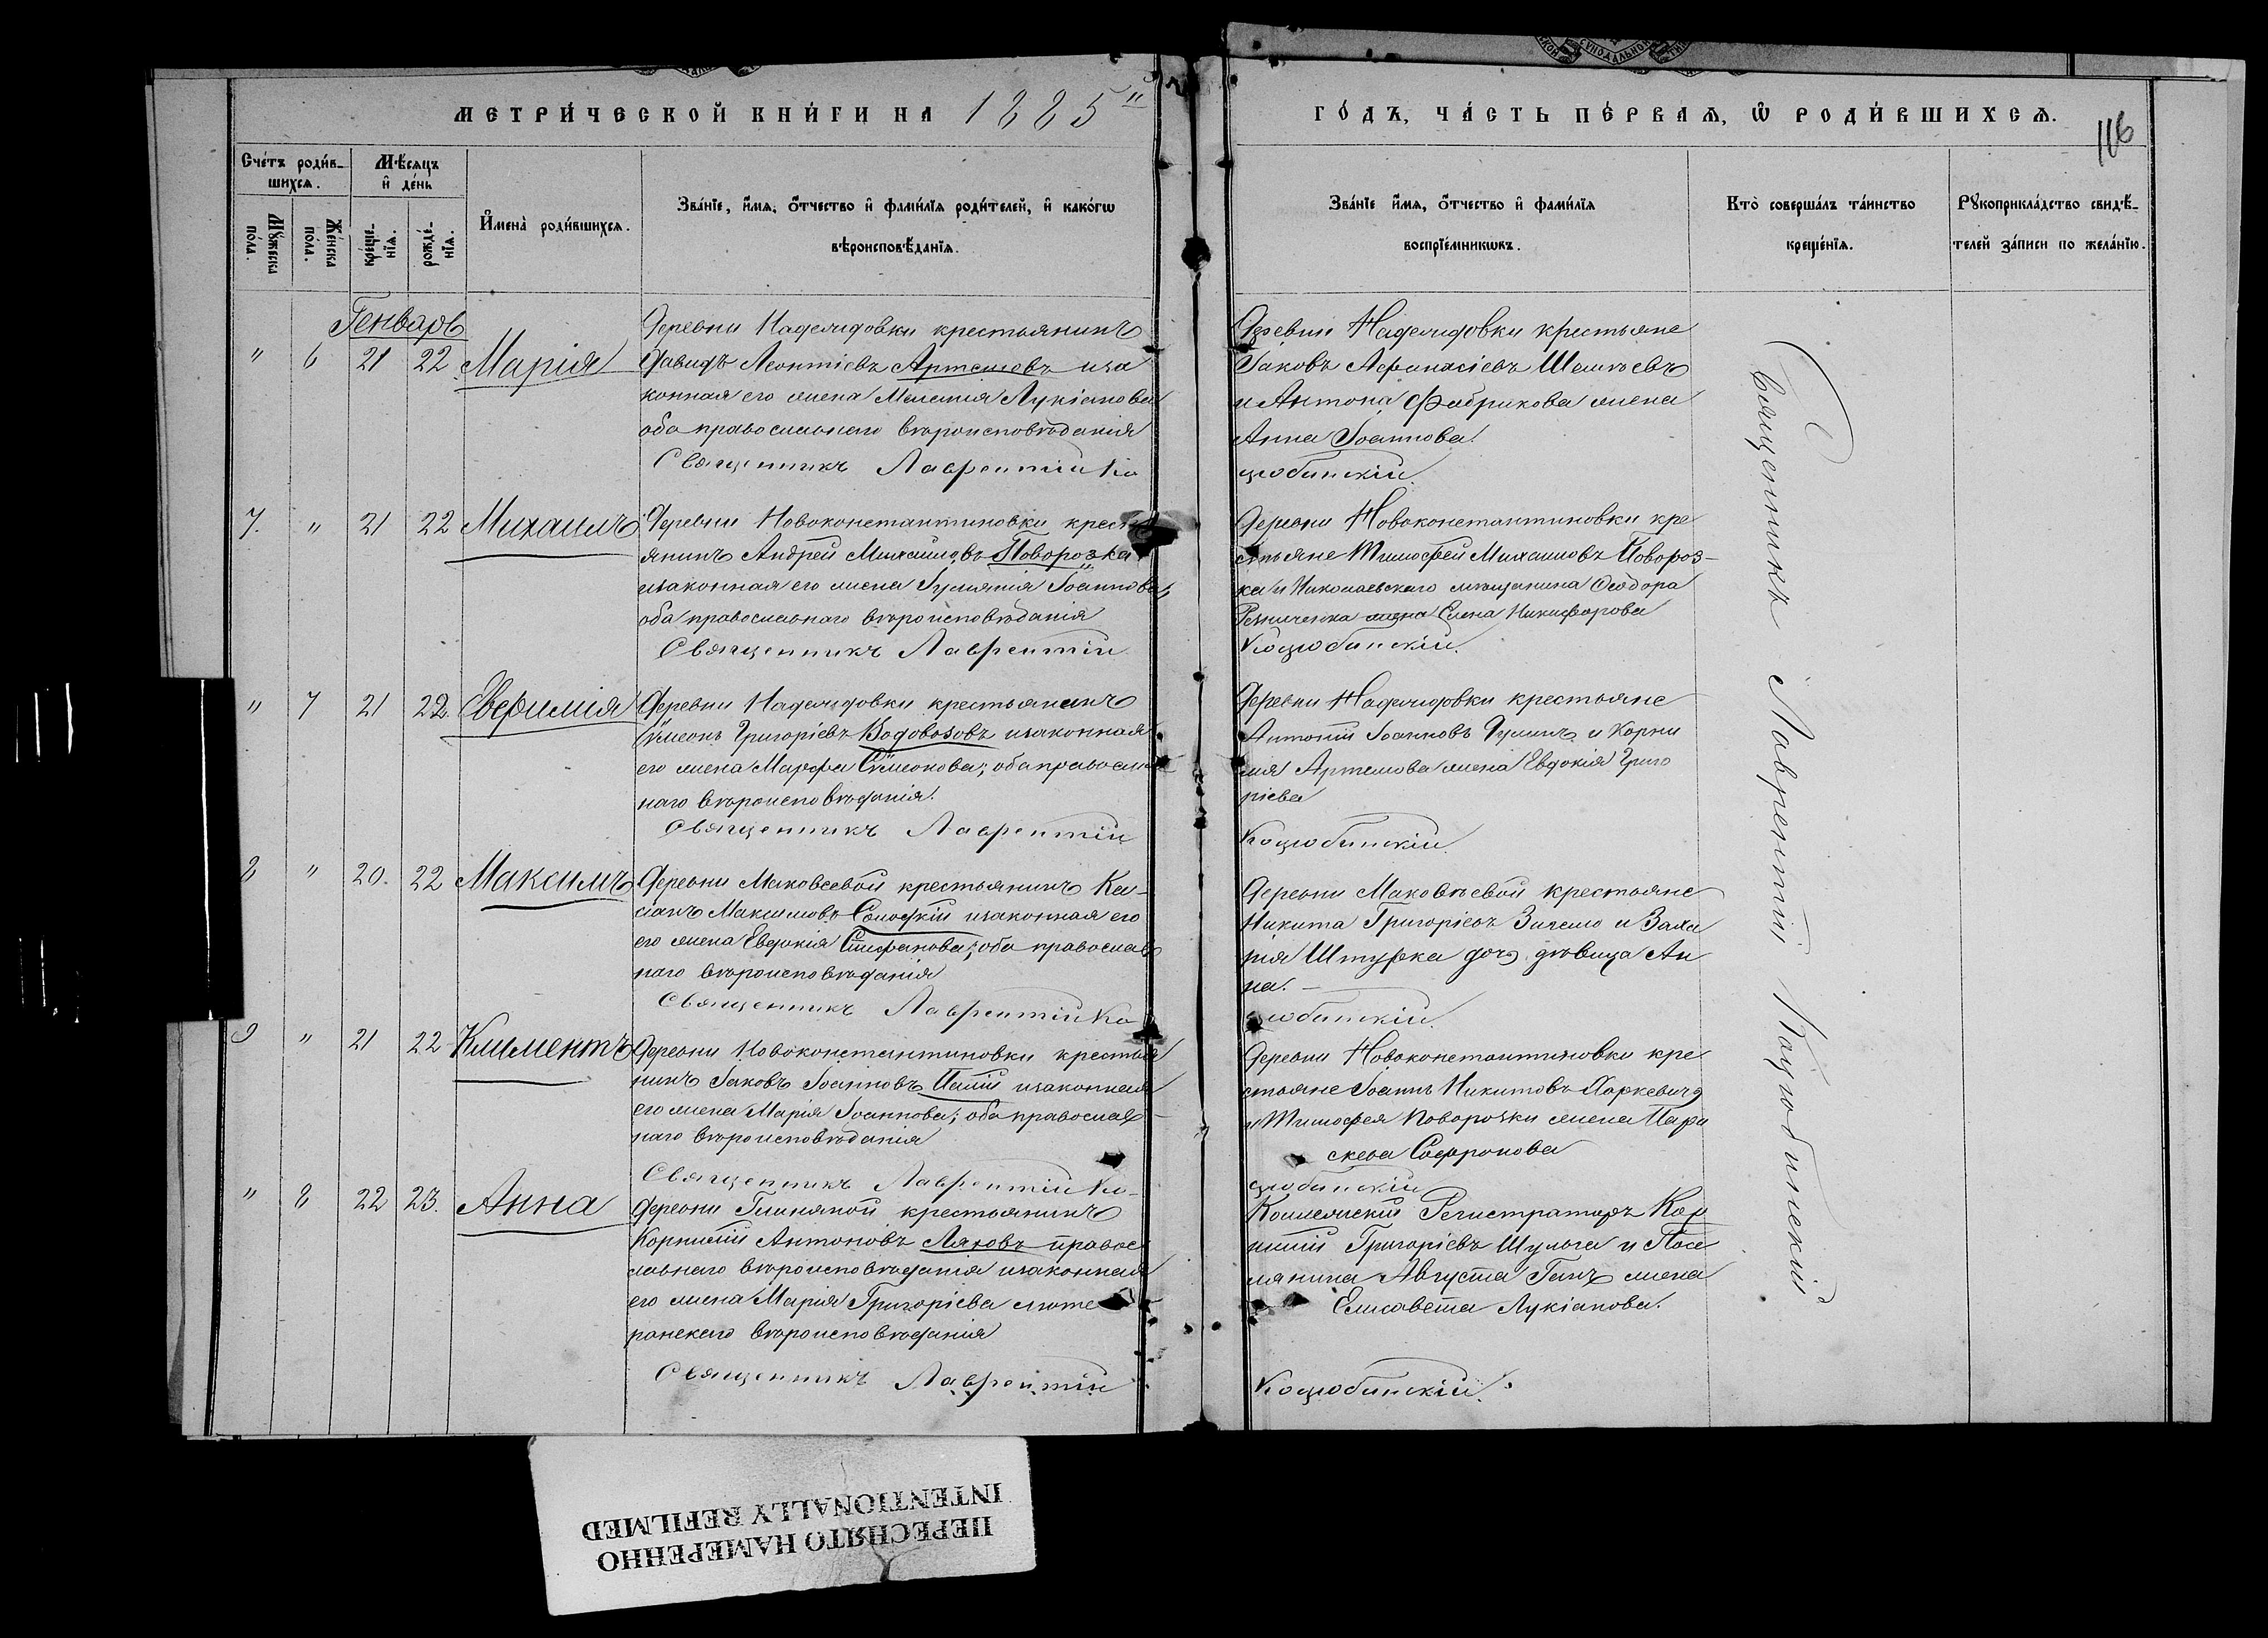 МЕТРИ́ЧЕСКОЙ КНИ́ГИ НА 1885 ГО́ДЪ, ЧА́СТЬ ПЕ́РВАѦ, Ѡ РОДИ́ВШИХСѦ.
116
Сче́тъ роди́в-
шихсѧ.
Мꙋ́жеска
по́ла.
Же́нска
по́ла.
Мѣ́сѧцъ
и҆ де́нь
кре́ще-
нїѧ.
рожде́-
нїѧ.
И҆мена̀ роди́вшихсѧ.
Зва́нїе, и҆́мѧ, ѻ҆́тчество и҆ фами́лїѧ роди́телей, и҆ како́гѡ
вѣроисповѣ́данїѧ.
Зва́нїе и҆́мѧ, ѻ҆́тчество и҆ фами́лїѧ
воспрїе́мникѡвъ.
Кто̀ соверша́лъ та́инство
креще́нїѧ.
Рꙋкоприкла́дство свидѣ́-
телей за́писи по жела́нїю.
Генварь
" 6 21 22 Марія
Деревни Надеждовки крестьянинъ
Давидъ Леонтіевъ Артемовъ иза
конная его жена Мелания Лукіанова
оба православнаго вѣроисповѣданія
Священникъ Лаврентій Ко
Деревни Надеждовки крестьяне
Іаковъ Афанасіевъ
и Антона Фабрикова жена
Анна Іоаннова
цюбинскій.
7. " 21 22 Михаилъ
Деревни Новоконстантиновки кресть
янинъ Андрей Михаиловъ Поворозка
изаконная его жена Іоаннова,
оба православнаго вѣроисповѣданія
Священникъ Лаврентій
Деревни Новоконстантиновки кре
стьяне Тимофей Михаиловъ Повороз-
ка и Николаевскаго мѣщанина Ѳеодора
Резниченка жена Елена Никифорова
Коцюбинскій.
" 7 21 22. Евфимія
Деревни Надеждовки крестьянинъ
Сѵмеонъ Григоріевъ Водовозовъ изаконная
его жена Марфа Сѵмеонова; оба православ
наго вѣроисповѣданія.
Священникъ Лаврентій
Деревни Надеждовки крестьяне
Антоній Іоанновъ и Корни
лія Артемова жена Евдокія Григо
ріева
Коцюбинскій.
8 " 20. 22 Максимъ
Деревни Маковеевой крестьянинъ Ка-
сіанъ Максимовъ изаконная его
его жена Евдокія Стефанова; оба православ
наго вѣроисповѣданія
Священникъ Лаврентій Ко
Деревни Маковѣевой крестьяне
Никита Григоріевъ и Заха
рія Штурка дочь дѣвица Ан
на. -
цюбинскій.
9 " 21 22 Климентъ
Деревни Новоконстантиновки крестья
нинъ Іаковъ Іоанновъ Палій изаконная
его жена Марія Іоаннова; оба православ
наго вѣроисповѣданія
Священникъ Лаврентій Ко-
Деревни Новоконстантиновки кре
стьяне Іоаннъ Никитовъ Харкевичъ
и Тимофея Поворозки жена Пара
скева Софронова
цюбинскій
" 8 22 23. Анна
Деревни Глиняной крестьянинъ
Корнилій Антоновъ Ляховъ правос
лавнаго вѣроисповѣданія изаконная
его жена Марія Григоріева люте
ранскаго вѣроисповѣданія
Священникъ Лаврентій
Коллежскій Регистраторъ Кор
нилій Григоріевъ Шульга и Посе
лянина Августа Ганъ жена
Елисавета Лукіанова.
Коцюбинскій.
Священникъ Лаврентій Коцюбинскій
ПЕРЕСНЯТО НАМЕРЕННО
INTENTIONALLY REFILMED